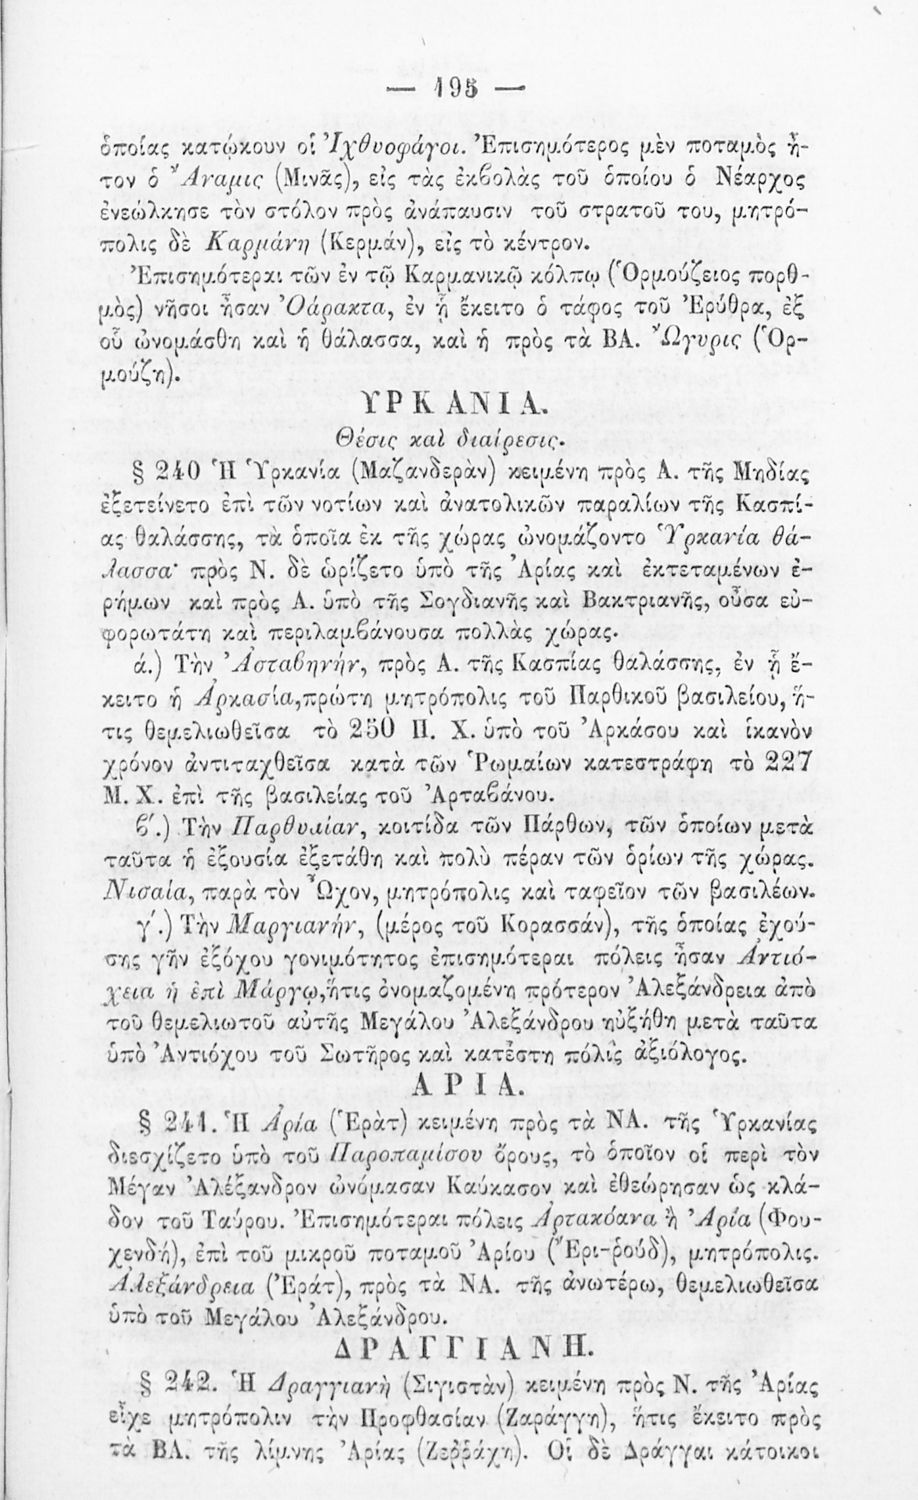 — 195 —
ὁποίας κατῴκουν οἱ Ἰχθυοφάγοι. Ἐπισημότερος μὲν ποταμὸς ἦ-
τον ὁ Ἄναμις (Μινᾶς), εἰς τὰς ἐκβολὰς τοῦ ὁποίου ὁ Νέαρχος
ἐνεώλκησε τὸν στόλον πρὸς ἀνάπαυσιν τοῦ στρατοῦ του, μητρό-
πολις δὲ Καρμάνη (Κερμάν), εἰς τὸ κέντρον.
Ἐπισημότεραι τῶν ἐν τῷ Καρμανικῷ κόλπῳ (Ὁρμούζειος πορθ-
μὸς) νῆσοι ἦσαν Ὀάρακτα, ἐν ᾗ ἔκειτο ὁ τάφος τοῦ Ἐρύθρα, ἐξ
οὗ ὠνομάσθη καὶ ἡ θάλασσα, καὶ ἡ πρὸς τὰ ΒΑ. Ὤγυρις (Ὁρ-
μούζη).
ΥΡΚΑΝΙΑ.
Θέσις καὶ διαίρεσις.
§ 240 Ἡ Ὑρκανία (Μαζανδερὰν) κειμένη πρὸς Α. τῆς Μηδίας
ἐξετείνετο ἐπὶ τῶν νοτίων καὶ ἀνατολικῶν παραλίων τῆς Κασπί-
ας θαλάσσης, τὰ ὁποῖα ἐκ τῆς χώρας ὠνομάζοντο Ὑρκανία θά-
λασσα· πρὸς Ν. δὲ ὡρίζετο ὑπὸ τῆς Ἀρίας καὶ ἐκτεταμένων ἐ-
ρήμων καὶ πρὸς Α. ὑπὸ τῆς Σογδιανῆς καὶ Βακτριανῆς, οὖσα εὐ-
φορωτάτη καὶ περιλαμβάνουσα πολλὰς χώρας.
ά.) Τὴν Ἀσταβηνήν, πρὸς Α. τῆς Κασπίας θαλάσσης, ἐν ᾗ ἔ-
κειτο ἡ Ἀρκασία, πρώτη μητρόπολις τοῦ Παρθικοῦ βασιλείου, ἥ-
τις θεμελιωθεῖσα τὸ 250 Π. Χ. ὑπὸ τοῦ Ἀρκάσου καὶ ἱκανὸν
χρόνον ἀντιταχθεῖσα κατὰ τῶν Ῥωμαίων κατεστράφη τὸ 227
Μ. Χ. ἐπὶ τῆς βασιλείας τοῦ Ἀρταβάνου.
β΄.) Τὴν Παρθυαίαν, κοιτίδα τῶν Πάρθων, τῶν ὁποίων μετὰ
ταῦτα ἡ ἐξουσία ἐξετάθη καὶ πολὺ πέραν τῶν ὁρίων τῆς χώρας.
Νισαία, παρὰ τὸν Ὦχον, μητρόπολις καὶ ταφεῖον τῶν βασιλέων.
γ΄.) Τὴν Μαργιανήν, (μέρος τοῦ Κορασσάν), τῆς ὁποίας ἐχού-
σης γῆν ἐξόχου γονιμότητος ἐπισημότεραι πόλεις ἦσαν Ἀντιό-
χεια ἡ ἐπὶ Μάργῳ, ἥτις ὀνομαζομένη πρότερον Ἀλεξάνδρεια ἀπὸ
τοῦ θεμελιωτοῦ αὐτῆς Μεγάλου Ἀλεξάνδρου ηὐξήθη μετὰ ταῦτα
ὑπὸ Ἀντιόχου τοῦ Σωτῆρος καὶ κατέστη πόλις ἀξιόλογος.
ΑΡΙΑ.
§ 241. Ἡ Ἀρία (Ἑρὰτ) κειμένη πρὸς τὰ ΝΑ. τῆς Ὑρκανίας
διεσχίζετο ὑπὸ τοῦ Παροπαμίσου ὄρους, τὸ ὁποῖον οἱ περὶ τὸν
Μέγαν Ἀλέξανδρον ὠνόμασαν Καύκασον καὶ ἐθεώρησαν ὡς κλά-
δον τοῦ Ταύρου. Ἐπισημότεραι πόλεις Ἀρτακόανα ἢ Ἀρία (Φου-
χενδή), ἐπὶ τοῦ μικροῦ ποταμοῦ Ἀρίου (Ἔρι-ῥούδ), μητρόπολις.
Ἀλεξάνδρεια (Ἑράτ), πρὸς τὰ ΝΑ. τῆς ἀνωτέρω, θεμελιωθεῖσα
ὑπὸ τοῦ Μεγάλου Ἀλεξάνδρου.
ΔΡΑΓΓΙΑΝΗ.
§ 242. Ἡ Δραγγιανὴ (Σιγιστὰν) κειμένη πρὸς Ν. τῆς Ἀρίας
εἶχε μητρόπολιν τὴν Προφθασίαν (Ζαράγγη), ἥτις ἔκειτο πρὸς
τὰ ΒΑ. τῆς λίμνης Ἀρίας (Ζεῤῥάχη). Οἱ δὲ Δράγγαι κάτοικοι